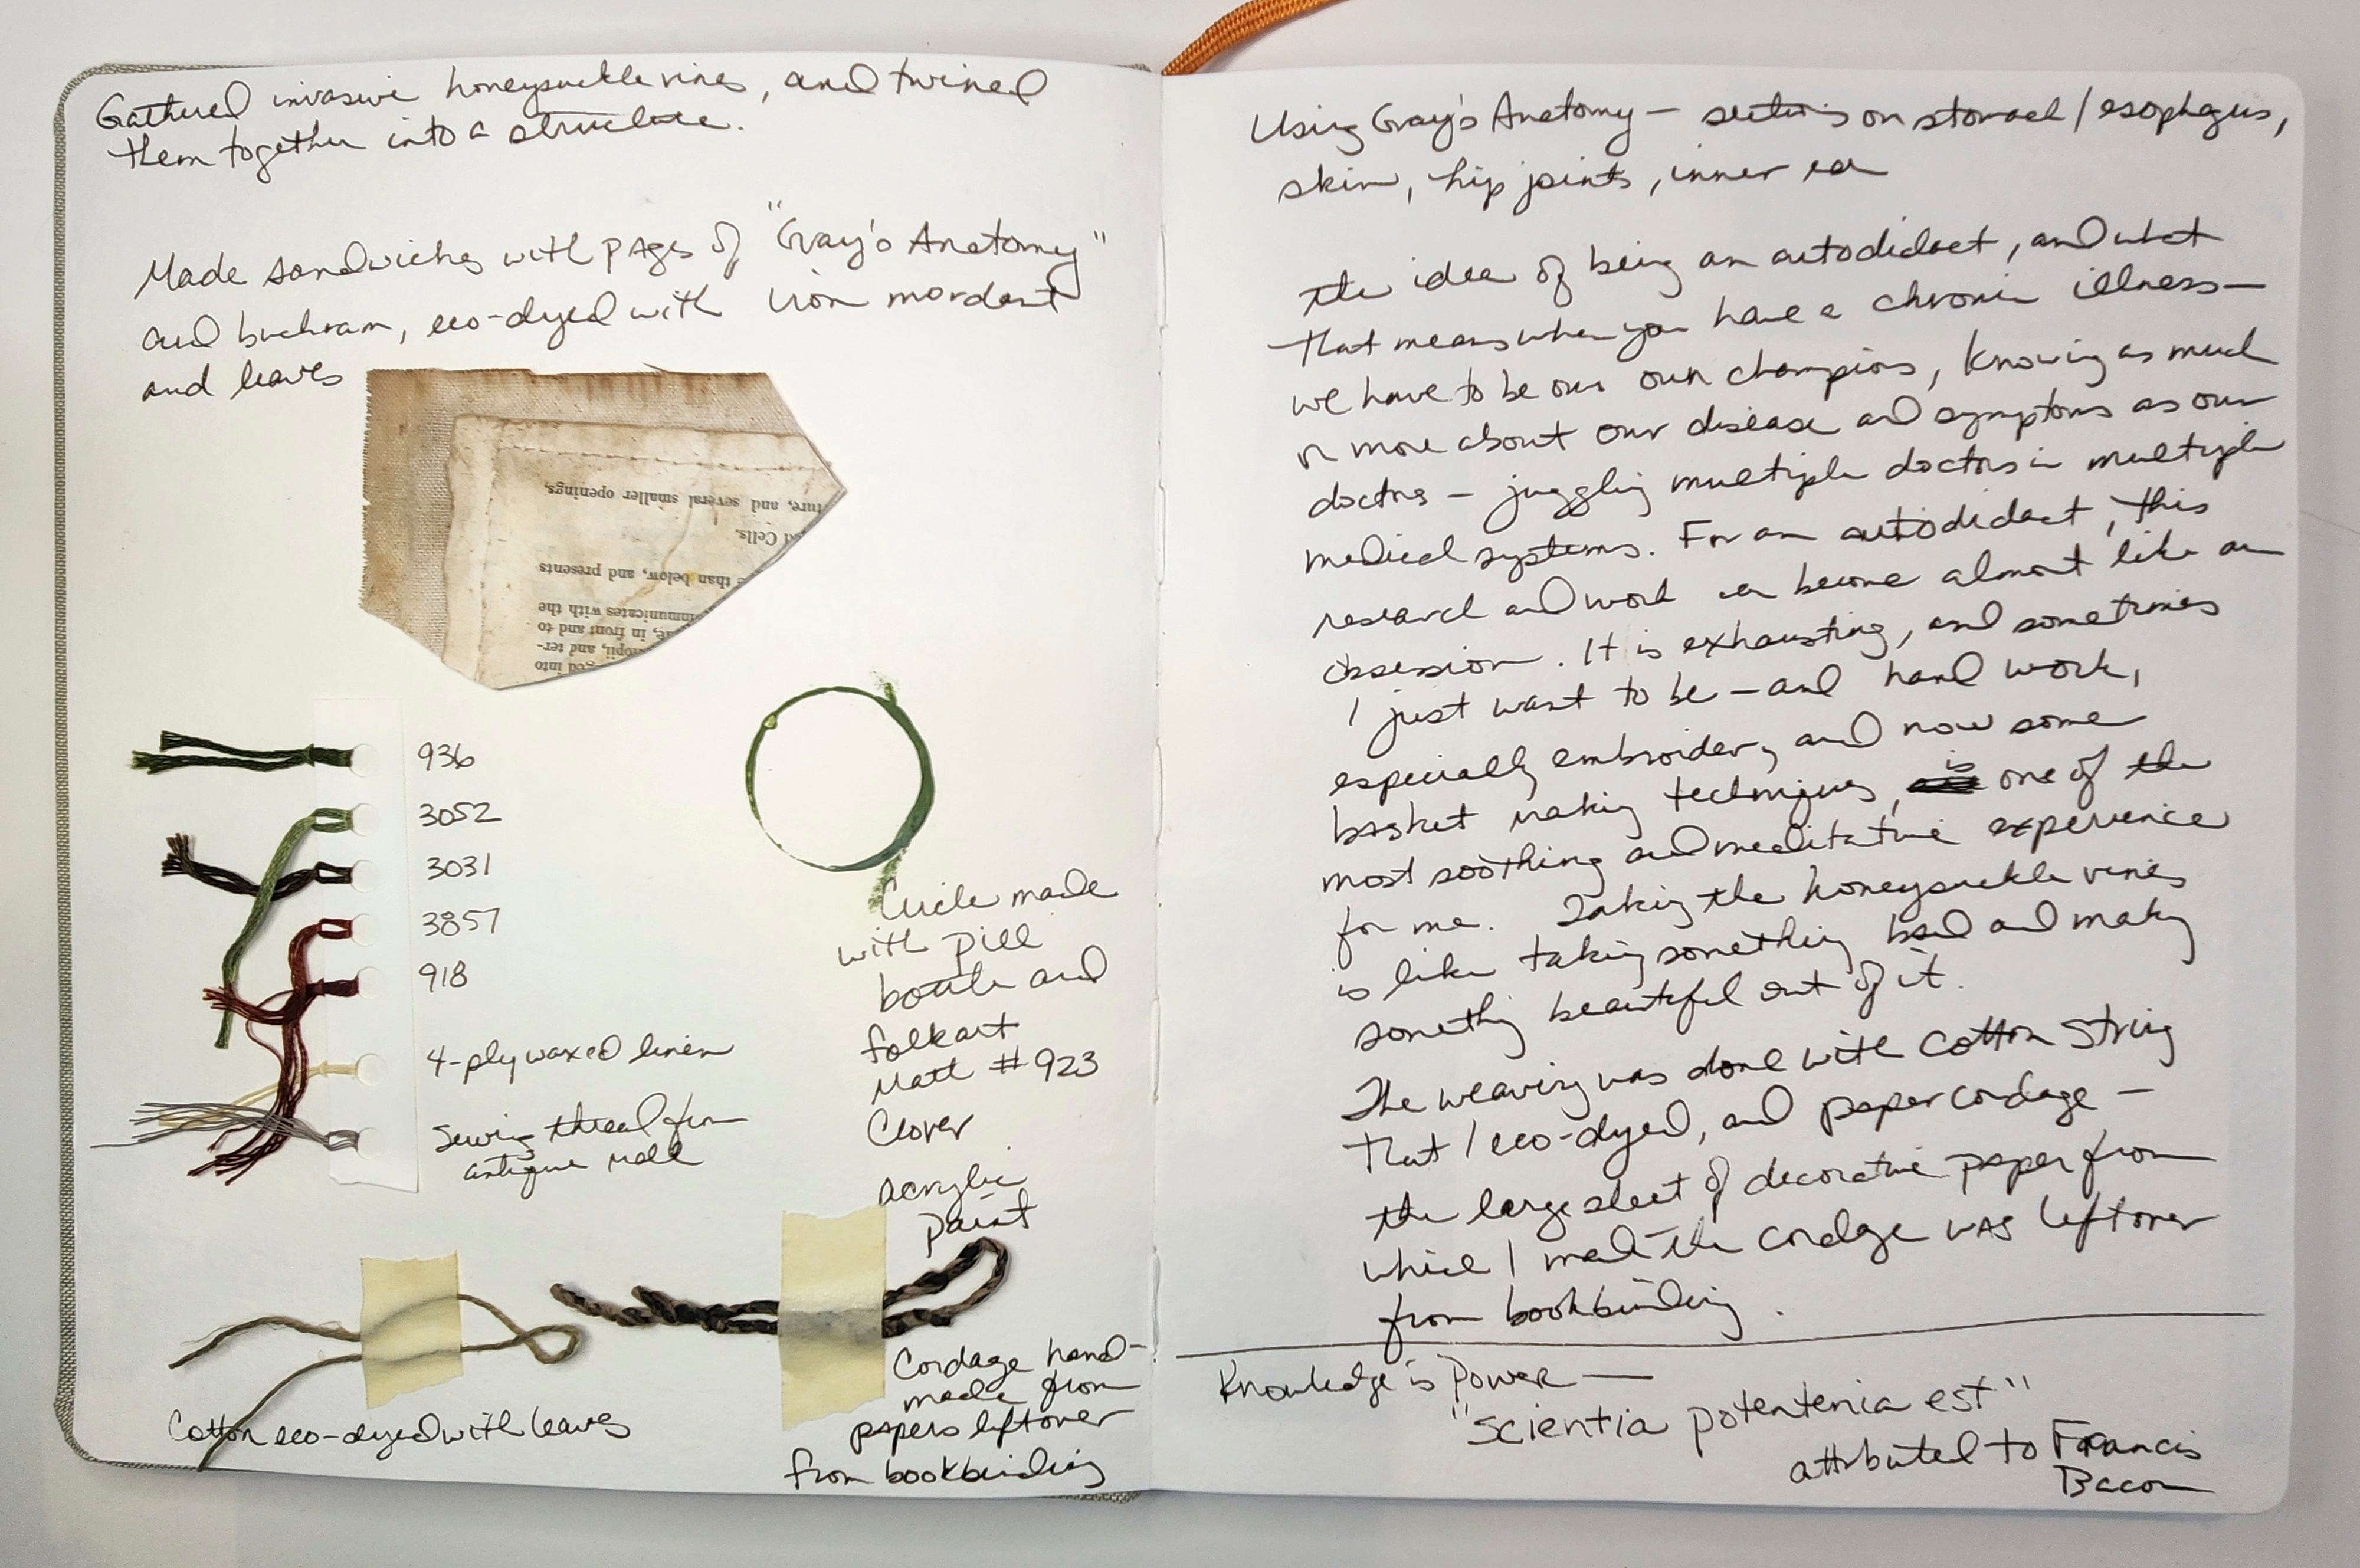 Gathered invasive honeysuckle vines, and twined
them together into a structure.
Made sandwiches with pages of "Gray's Anatomy"
and buckram, eco-dyed with iron mordant
and leaves
ture, and several smaller openings,
d Cells.
than below, and presents
mmunicates with the
in front and to
and ter-
ged into
936
3052
3031
3857
918
4-ply waxed linen
Sewing thread from
antique mall
Circle made
with pill
bottle and
folkart
Matt #923
Clover
acrylic
paint
Cotton eco-dyed with leaves
Cordage hand-
made from
papers leftover
from bookbinding
Using Gray's Anatomy — sections on stomach/esophagus,
skin, hip joints, inner ear
the idea of being an autodidact, and what
that means when you have a chronic illness —
we have to be our own champions, knowing as much
or more about our disease and symptoms as our
doctors — juggling multiple doctors in multiple
medical systems. For an autodidact, this
research and work can become almost like an
obsession. It is exhausting, and sometimes
I just want to be — and hand work,
especially embroidery and now some
basket making techniques, is one of the
most soothing and meditative experience
for me. Taking the honeysuckle vines
is like taking something bad and making
something beautiful out of it.
The weaving was done with cotton string
that I eco-dyed, and paper cordage —
the large sheet of decorative paper from
which I made the cordage was leftover
from bookbinding.
Knowledge is Power —
"Scientia potentenia est"
attributed to Francis
Bacon